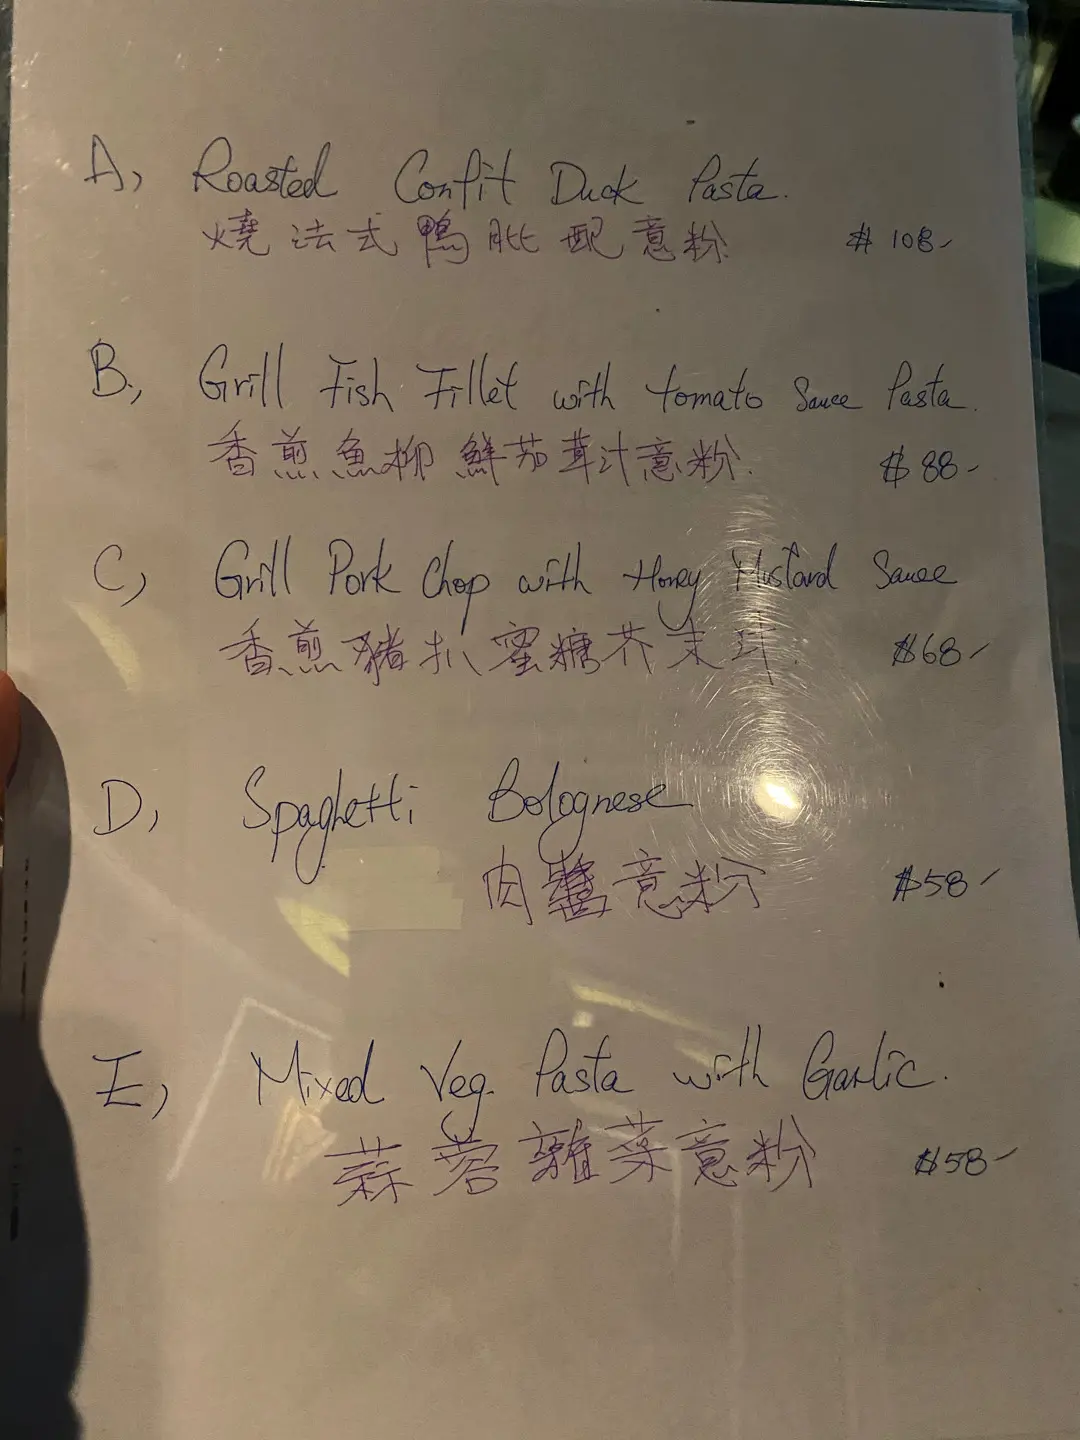 A, Roasted Confit Duck Pasta.
燒法式鴨髀配意粉 $108-
B, Grill Fish Fillet with tomato Sauce Pasta.
香煎魚柳鮮茄茸汁意粉. $88-
C, Grill Pork Chop with Honey Mustard Sauce
香煎豬扒蜜糖芥末汁. $68-
D, Spaghetti Bolognese
肉醬意粉 $58-
E, Mixed Veg. Pasta with Garlic.
蒜蓉雜菜意粉 $58-